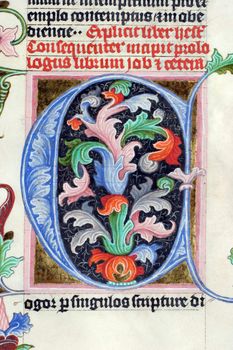 emplo contemptus inobe
dienae. Explicit liber hest
Consequenter incipit prolo
logus librum job & cetera
C
ogor p singulos scripture di